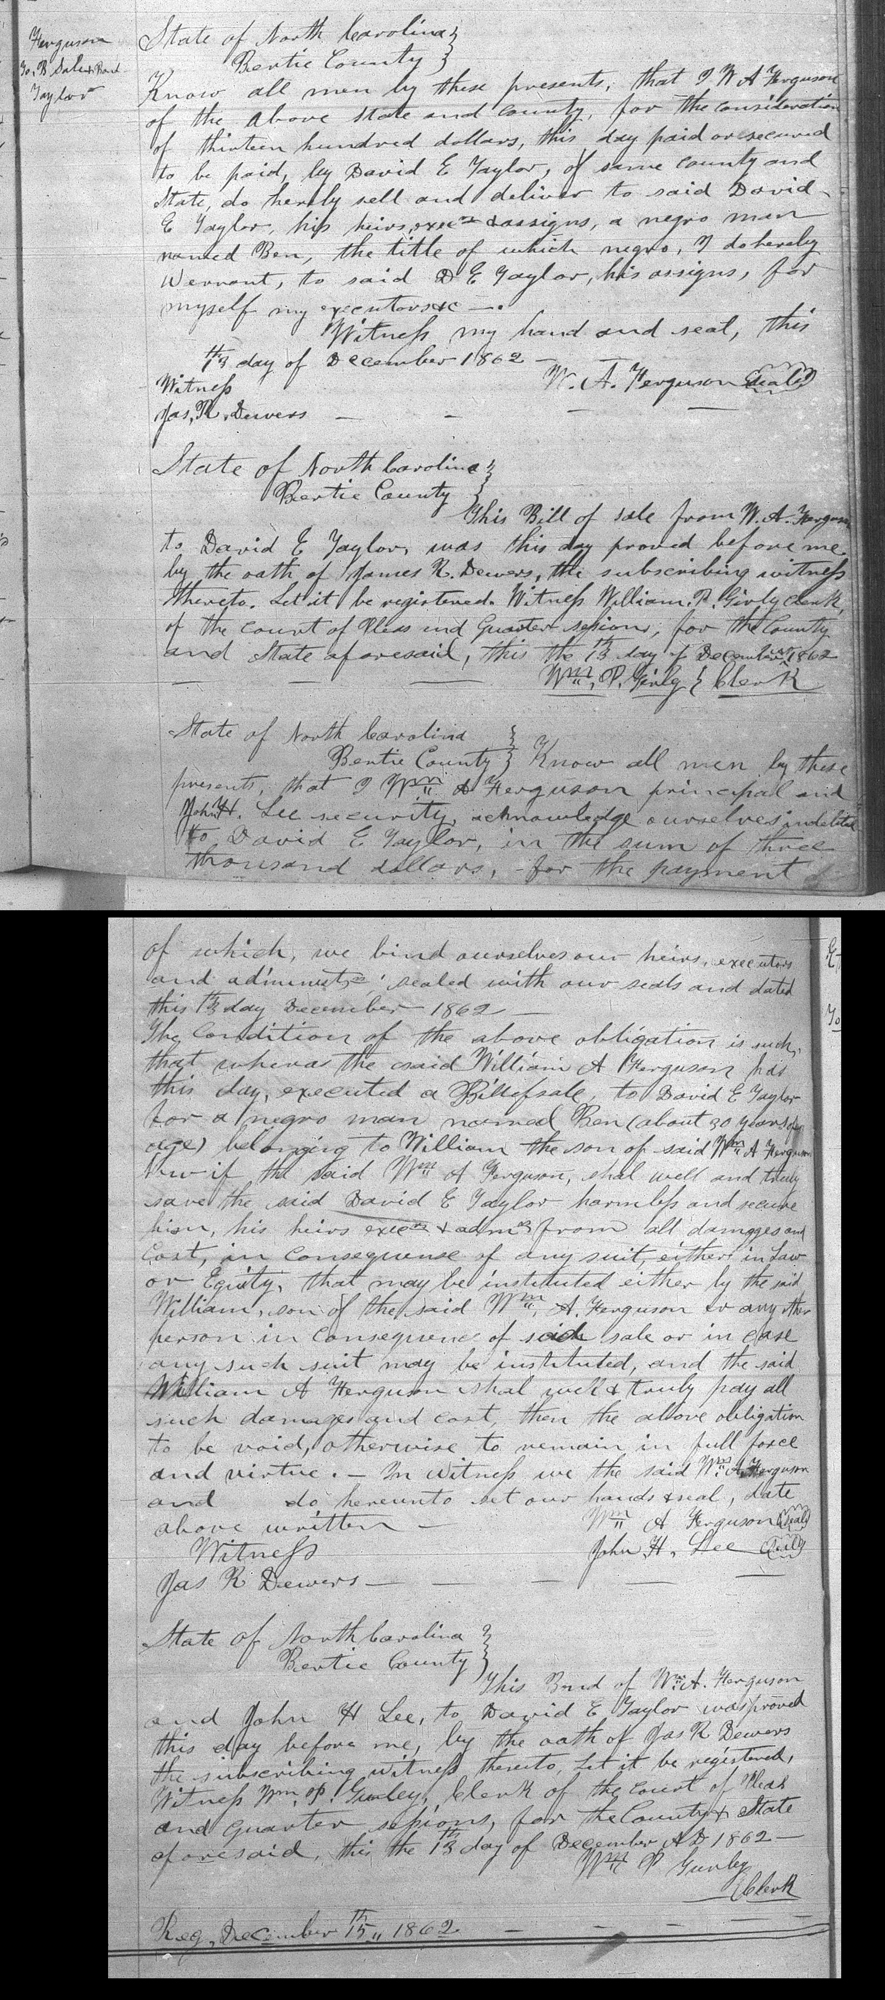 Ferguson
To, B Sale & Bond
Taylor
State of North Carolina }
Bertie County }
Know all men by these presents, that I W A Ferguson
of the above State and County, for the consideration
of thirteen hundred dollars, this day paid or secured
to be paid, by David E Taylor, of same county and
State, do hereby sell and deliver to said David
E Taylor, his heirs, execrs & assigns, a negro man
named Ben, the title of which negro, I do hereby
Warrant, to said D E Taylor, his assigns, for
myself my executors &c —.
Witness my hand and seal, this
13th day of December 1862 —
Witness W. A. Ferguson (Seal)
Jas, R. Dewers — — — —
State of North Carolina }
Bertie County }
This Bill of sale from W. A. Ferguson
to David E Taylor, was this day proved before me
by the oath of James R. Dewers, the subscribing witness
thereto. Let it be registered. Witness William. P. Gurly Clerk,
of the Court of Pleas and Quarter sessions, for the County
and State aforesaid, this the 13th day of December, 1862
— — Wm, P. Gurly } Clerk
State of North Carolina }
Bertie County } Know all men by these
presents, that I Wm A Ferguson principal and
John H. Lee security, acknowledge ourselves indebted
to David E Taylor, in the sum of three
thousand dollars, - for the payment
of which, we bind ourselves our heirs, executors
and administrs; sealed with our seals and dated
this 13th day December 1862 —
The Condition of the above obligation is such,
that wheras the said William A Ferguson has
this day, executed a Bill of sale, to David E Taylor
for a negro man named Ben (about 30 years of
age) belonging to William the son of said Wm A Ferguson
Now if the said Wm A Ferguson, shal well and truly
save the said David E Taylor harmless and secure
him, his heirs execrs & admrs from all damages and
Cost, in consequense of any suit, either in Law
or Equity, that may be instituted either by the said
William, son of the said Wm, A. Ferguson or any other
person in consequense of said sale or in case
any such suit may be instituted, and the said
William A Ferguson shal well & truly pay all
such damages and cost, then the above obligation
to be void, otherwise to remain in full force
and virtue. — In witness we the said Wm A Ferguson
and do hereunto set our hands & seal, date
above written — Wm A Ferguson (Seal)
Witness John H. Lee (Seal)
Jas R Dewers — — — — —
State of North Carolina }
Bertie County }
This Bond of Wm A. Ferguson
and John H Lee, to David E Taylor was proved
this day before me, by the oath of Jas R Dewers
the subscribing witness thereto, Let it be registered,
Witness Wm, P. Gurley, Clerk of the Court of Pleas
and Quarter sessions, for the County & State
aforesaid, this the 13th day of December AD 1862 —
Wm P Gurley
Clerk
Reg, December 15th, 1862 — — — —